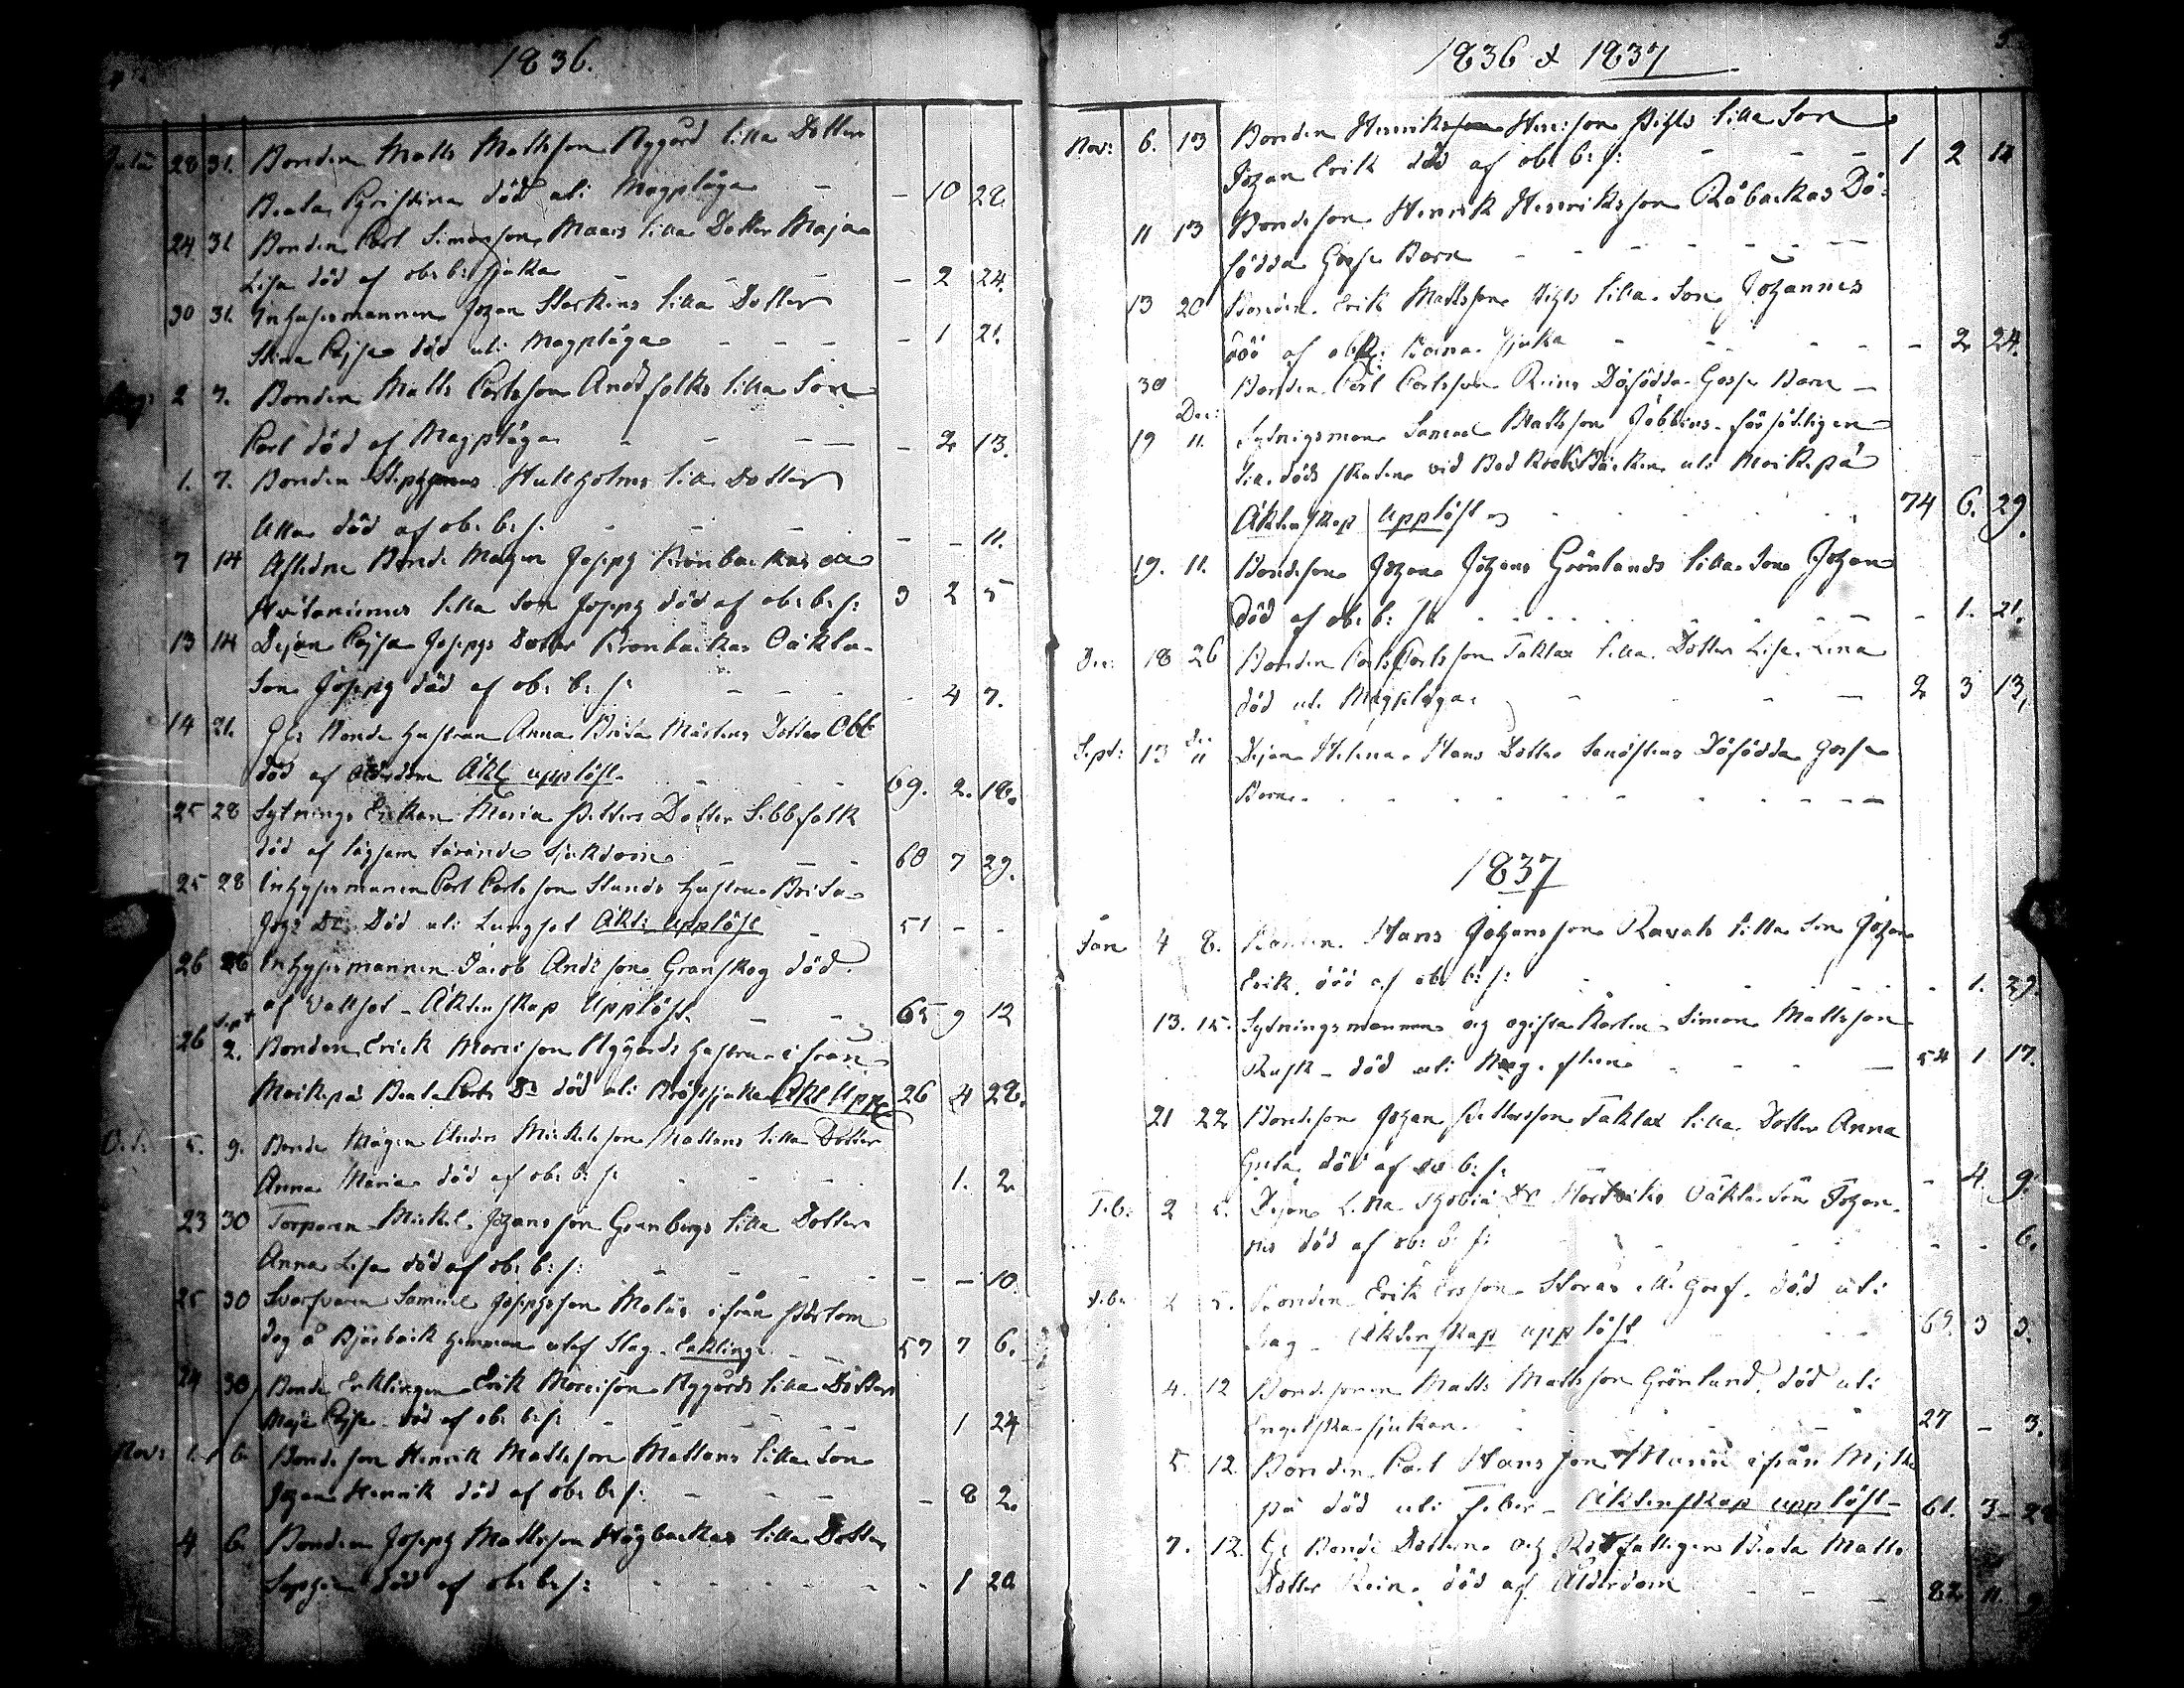 1836.
Julii 28 31. Bonden Matts Mattsson Nygård lilla Dotter
Beata Christina död uti Magplåga - - 10 28.
24 31 Bonden Carl Simonsson Maars lilla Dotter Maja
Lisa död af ob: b: sjuka - - - 2 24.
30 31. Inhysesmannen Johan Starkins lilla Dotter
Stina Cajsa död uti Magplåga - - - - 1 21.
Aug: 2 7. Bonden Matts Carlsson Andsfolks lilla Son
Carl död af Magplåga - - - - 2 13.
1. 7. Bonden Hullholms lilla Dotter
Ulla död af ob: b: s. - - - - - 11.
7 14 Aflidne Bonde Mågen Joseph Kronbackas
lilla Son Joseph död af ob: b: s: 3 2 5
13 14 Dejan Cajsa Josephs Dotter Kronbackas Oäkta
Son Joseph död af ob: b: s: - - - - 4 7.
14 21. Bonde hustrun Anna Brita Mårtens Dotter
död af Ålderdom Äkt: upplöst - - - 69. 2. 18.
25 28 Sytnings Enkan Maria Petters Dotter Sebbfolk
död af lågsam tärande Sjukdom - - - 60 7 29.
25 28 Inhysesmannen Carl Carlsson Slunds hustru Brisa
Dr Död uti Lungsot Äkt: Upplöst - 51 - -
26 28 Inhysesmannen Jacob Andersson Granskog död
af Vattsot - Äktenskap Upplöst - - 65 9 12
Sept
26 2. Bonden Erick Nygårds hustru ifrån
Beata Carls Dr död uti Bröstsjuka Äkt Uppl 26 4 28.
Oct: 5. 9. Bonde Mågen Anders Mickelsson Mattans lilla Dotter
Anna Maria död af ob: b: s: - - - 1. 2
23 30 Torparen Mickel Johansson Granbergs lilla Dotter
Anna Lisa död af ob: b: s: - - - - - 10.
25 30 Svarfvaren Samuel Josephsson Molär ifrån
dag å Bjösback hemman utaf Slag. Enkling - - 57 7 6.
24 30 Bonde Enklingen Erik Nygårds lilla Dotter
Maja Cajsa död af ob: b: s: - - - - 1 24
Nov: 1. 6. Bondeson Henrik Mattsson Mattans lilla Son
Johan Henrik död af ob: b: s: - - - - 8 2.
4 6. Bonden Joseph Mattsson Högbackas lilla Dotter
Sophia död af ob: b: s: - - - - - 1 20
1836 & 1837
5
Nov: 6. 13 Bonden Henriksson lilla Son
Johan Erik död af ob: b: s: - - - 1 2 12
11 13 Bondeson Henrik Henriksson Råbackas Dö
födda Gosse Barn - - - - - -
13 20 Bonden Erik Mattsson lilla Son Johannes
död af obk: Barna Sjuka - - - - - 2 24.
30 Bonden Carl Carlsson Reins Döfödda Gosse Barn -
Dec:
19 11. Sytnigsman Samuel Mattsson Jobbins
död skuten vid uti Moikipä
Äktenskap upplöst - - - - 74 6. 29.
19. 11. Bondeson Johan Johans Grönlands lilla Son Johan
död af ob: b: s: - - - - - - 1. 21.
Dec: 18 26 Bonden Carls Carlsson Taklax lilla Dotter Lisa Lena
död uti Magplåga - - - 2 3 13
Sept: 13 Dec 11 Dejan Helena Hans Dotter Sandstens Döfödda Gosse
Barn - - - - - - - - - -
1837
Jan 4 8. Bonden Hans Johansson Ravals lilla Son Johan
Erik död af ob: b: s: - - - - - 1. 29.
13. 15. Sytningsmannen og ogifta Karlen Simon Mattsson
Rusk - död uti - - - 54 1 17.
21 22 Bondeson Johan Pettersson Taklax lilla Dotter Anna
Greta död af ob: b: s: - - - - 4. 9.
Feb: 2 5. Dejan Lena Dr Oäkta Son Johan-
nes död af ob: b: s: - - - - - 6.
Feb: 2 5. Bonden Erik Ersson Storås död uti
Slag - Äktenskap upplöst - - - 69. 3 3.
4. 12 Bondesonen Matts Mattsson Grönlund död uti
Engelska sjukan - - - - 27 - 3.
5. 12. Bonden Carl Hansson ifrån
pä död uti Feber - Äktenskap upplöst - 61. 3 - 28
7. 12. Bonde Dottern och Rotfattigen Beata Matts
Dotter Rein död af Ålderdom - - - 82 11.